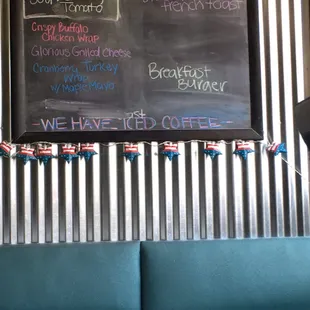 Tomato
french toast
Crispy Buffalo
Chicken Wrap
Glorious Grilled Cheese
Cranberry Turkey
Wrap
w/ Maple Mayo
Breakfast
Burger
-WE HAVE ICED COFFEE-